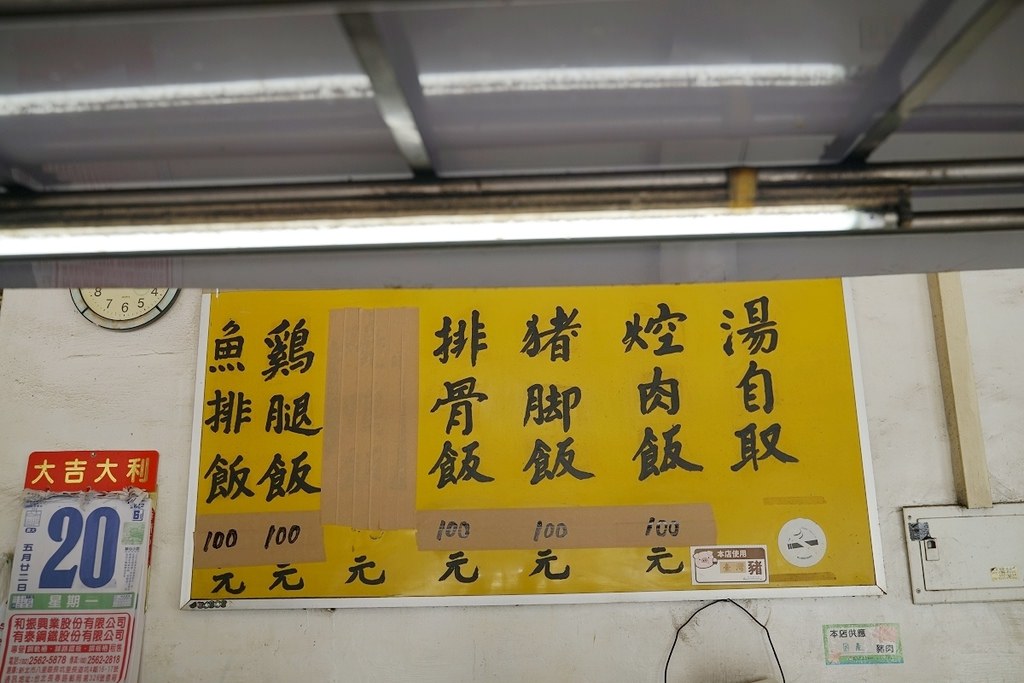 湯自取
焢肉飯
100
元
猪脚飯
100
元
排骨飯
100
元
元
鷄腿飯
100
元
魚排飯
100
元
本店使用
豬
8 7 6 5 4
大吉大利
20
五月廿二日
星期一
和振興業股份有限公司
有泰鋼鐵股份有限公司
2562-5878
2562-2818
本店供應
豬肉